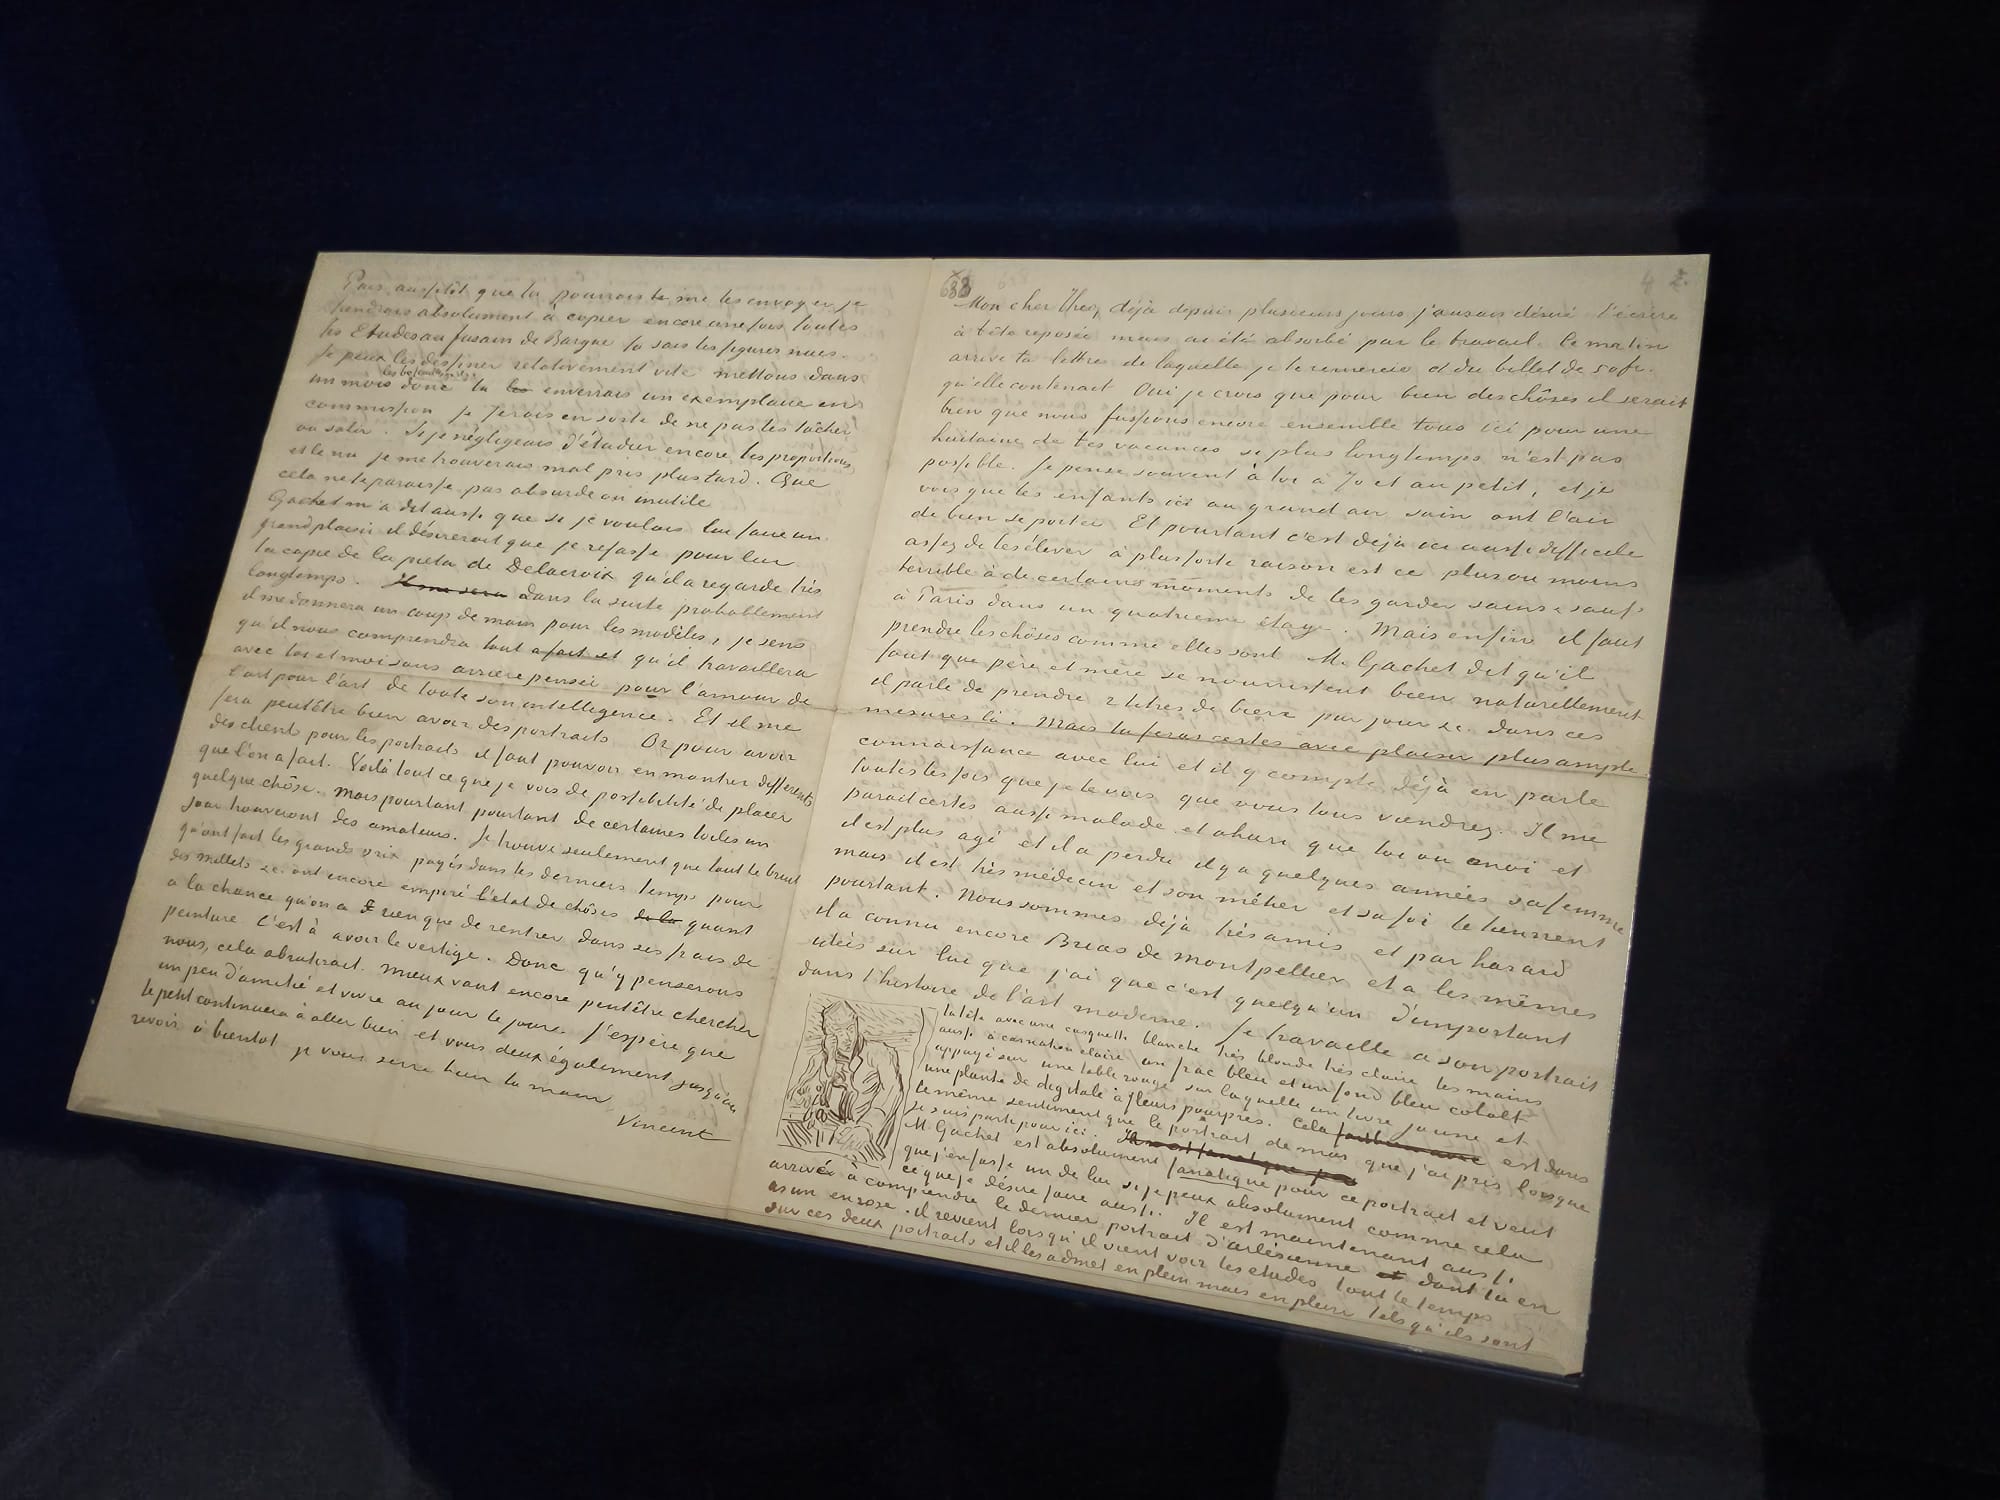 Puis aussitôt que tu pourrais te me les envoyer je
tiendrais absolument à copier encore une fois toutes
les Etudes au fusain de Bargue tu sais les figures nues.
Je peux les dessiner relativement vite mettons dans
un mois donc tu les enverrais un exemplaire en
commission je ferais en sorte de ne pas les tâcher
ou salir. Si je négligeais d'étudier encore les proportions
et le nu je me trouverais mal pris plus tard. Que
cela ne te paraisse pas absurde ou inutile
Gachet m'a dit aussi que si je voulais lui faire un
grand plaisir il désirerait que je refasse pour lui
la copie de la pieta de Delacroix qu'il a regardé très
longtemps. Il me sera Dans la suite probablement
il me donnera un coup de main pour les modèles, je sens
qu'il nous comprendra tout à fait et qu'il travaillera
avec toi et moi sans arrière pensée pour l'amour de
l'art pour l'art de toute son intelligence. Et il me
fera peutêtre bien avoir des portraits Or pour avoir
des clients pour les portraits il faut pouvoir en montrer différents
que l'on a fait. Voilà tout ce que je vois de possibilité de placer
quelque chôse. Mais pourtant pourtant de certaines toiles un
jour trouveront des amateurs. Je trouve seulement que tout le bruit
qu'ont fait les grands prix payés dans les derniers temps pour
des Millets &c. ont encore empiré l'état de chôses de la quant
à la chance qu'on a rien que de rentrer dans ses frais de
peinture C'est à avoir le vertige. Donc qu'y penserons
nous, cela abrutirait. Mieux vaut encore peutêtre chercher
un peu d'amitié et vivre au jour le jour. J'espère que
le petit continuera à aller bien et vous deux également jusqu'au
revoir à bientot je vous serre bien la main
Vincent
4
Mon cher Theo, déjà depuis plusieurs jours j'aurais désiré t'écrire
à tête reposée mais ai été absorbé par le travail. Ce matin
arrive ta lettre de laquelle je te remercie et du billet de 50 fr.
qu'elle contenait Oui je crois que pour bien des chôses il serait
bien que nous fussions encore ensemble tous ici pour une
huitaine de tes vacances si plus longtemps n'est pas
possible. Je pense souvent à toi à Jo et au petit, et je
vois que les enfants ici au grand air sain ont l'air
de bien se porter Et pourtant c'est déjà ici aussi difficile
assez de les élever à plus forte raison est ce plus ou moins
terrible à de certains moments de les garder sains & saufs
à Paris dans un quatrieme étage. Mais enfin il faut
prendre les chôses comme elles sont M. Gachet dit qu'il
faut que père et mère se nourrissent bien naturellement
il parle de prendre 2 litres de biere par jour &c. dans ces
mesures là. Mais tu feras certes avec plaisir plus ample
connaissance avec lui et il y compte déjà en parle
toutes les fois que je le vois que vous tous viendrez. Il me
parait certes aussi malade et ahuri que toi ou moi et
il est plus agé et il a perdu il y a quelques années sa femme
mais il est très médecin et son métier et sa foi le tiennent
pourtant. Nous sommes déjà très amis et par hasard
il a connu encore Brias de Montpellier et a les mêmes
idées sur lui que j'ai que c'est quelqu'un d'important
dans l'histoire de l'art moderne. Je travaille a son portrait
la tête avec une casquette blanche très blonde très claire les mains
aussi à carnation claire un frac bleu et un fond bleu cobalt
appuyé sur une table rouge sur laquelle un livre jaune et
une plante de digitale à fleurs pourpres. Cela est dans
le même sentiment que le portrait de moi que j'ai pris lorsque
je suis parti pour ici.
M Gachet est absolument fanatique pour ce portrait et veut
que j'en fasse un de lui si je peux absolument comme cela
ce que je désire faire aussi. Il est maintenant aussi
arrivé à comprendre le dernier portrait d'arlésienne et dont tu en
as un en rose. il revient lorsqu'il vient voir les etudes tout le temps
sur ces deux portraits et il les admet en plein mais en plein tels qu'ils sont